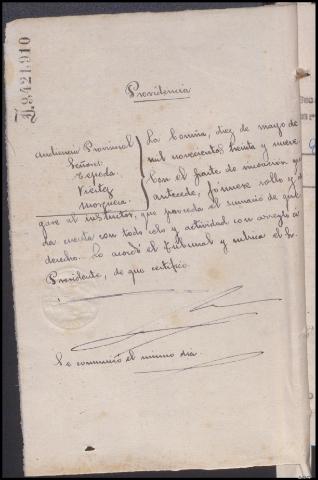 J.9421.910
Providencia
Audiencia Provincial
Señores
Tejeda
Vieitez
La Coruña, diez de mayo de
mil novecientos treinta y nueve
Con el parte de incoación que
antecede, fórmese rollo y
al instructor, que proceda el sumario de que
da cuenta con todo celo y actividad con arreglo a
derecho. Lo acordó el Tribunal y rubrica el Sr.
Presidente, de que certifico.
Se comunicó el mismo día.